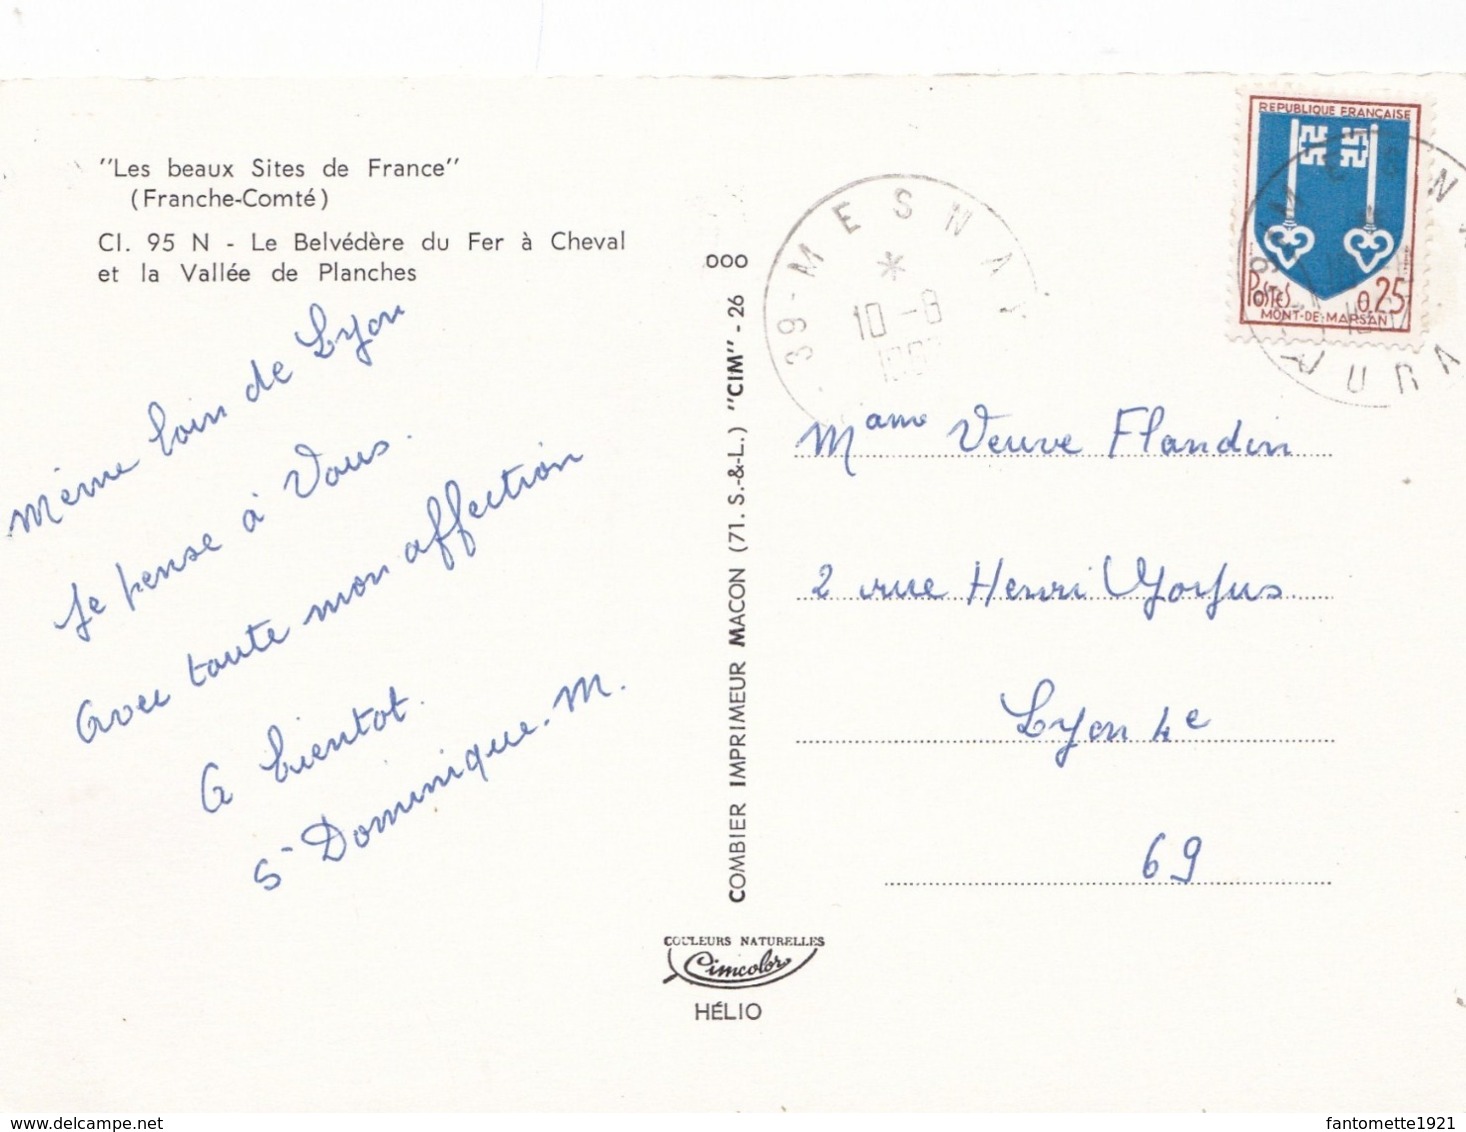 "Les beaux Sites de France"
(Franche-Comté)
CI. 95 N - Le Belvédère du Fer à Cheval
et la Vallée de Planches
même loin de Lyon
Je pense à Vous.
Avec toute mon affection
A bientot.
Sr Dominique. M.
COMBIER IMPRIMEUR MACON (71. S.-&-L.) "CIM" - 26
COULEURS NATURELLES
Cimcolor
HÉLIO
39 - MESNAY
10 - 8
REPUBLIQUE FRANÇAISE
POSTES 0,25
MONT-DE-MARSAN
JURA
Mame Veuve Flandin
2 rue Henri Gorjus
Lyon 4e
69
fantomette1921